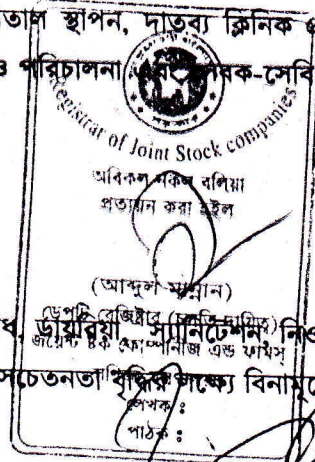 হাসপাতাল স্থাপন, দাতব্য ক্লিনিক
ও পরিচালনা এবং সেবক-সেবি
Registrar of Joint Stock companies
অবিকল নকল বলিয়া
প্রত্যয়ন করা হইল
(আব্দুল মান্নান)
ডেপুটি রেজিষ্ট্রার (চলতি দায়িত্ব)
জয়েন্ট ষ্টক কোম্পানিজ এন্ড ফার্মস্
ডায়রিয়া স্যানিটেশন
সচেতনতা বৃদ্ধির লক্ষ্যে বিনামূল্যে
লেখক :
পাঠক :